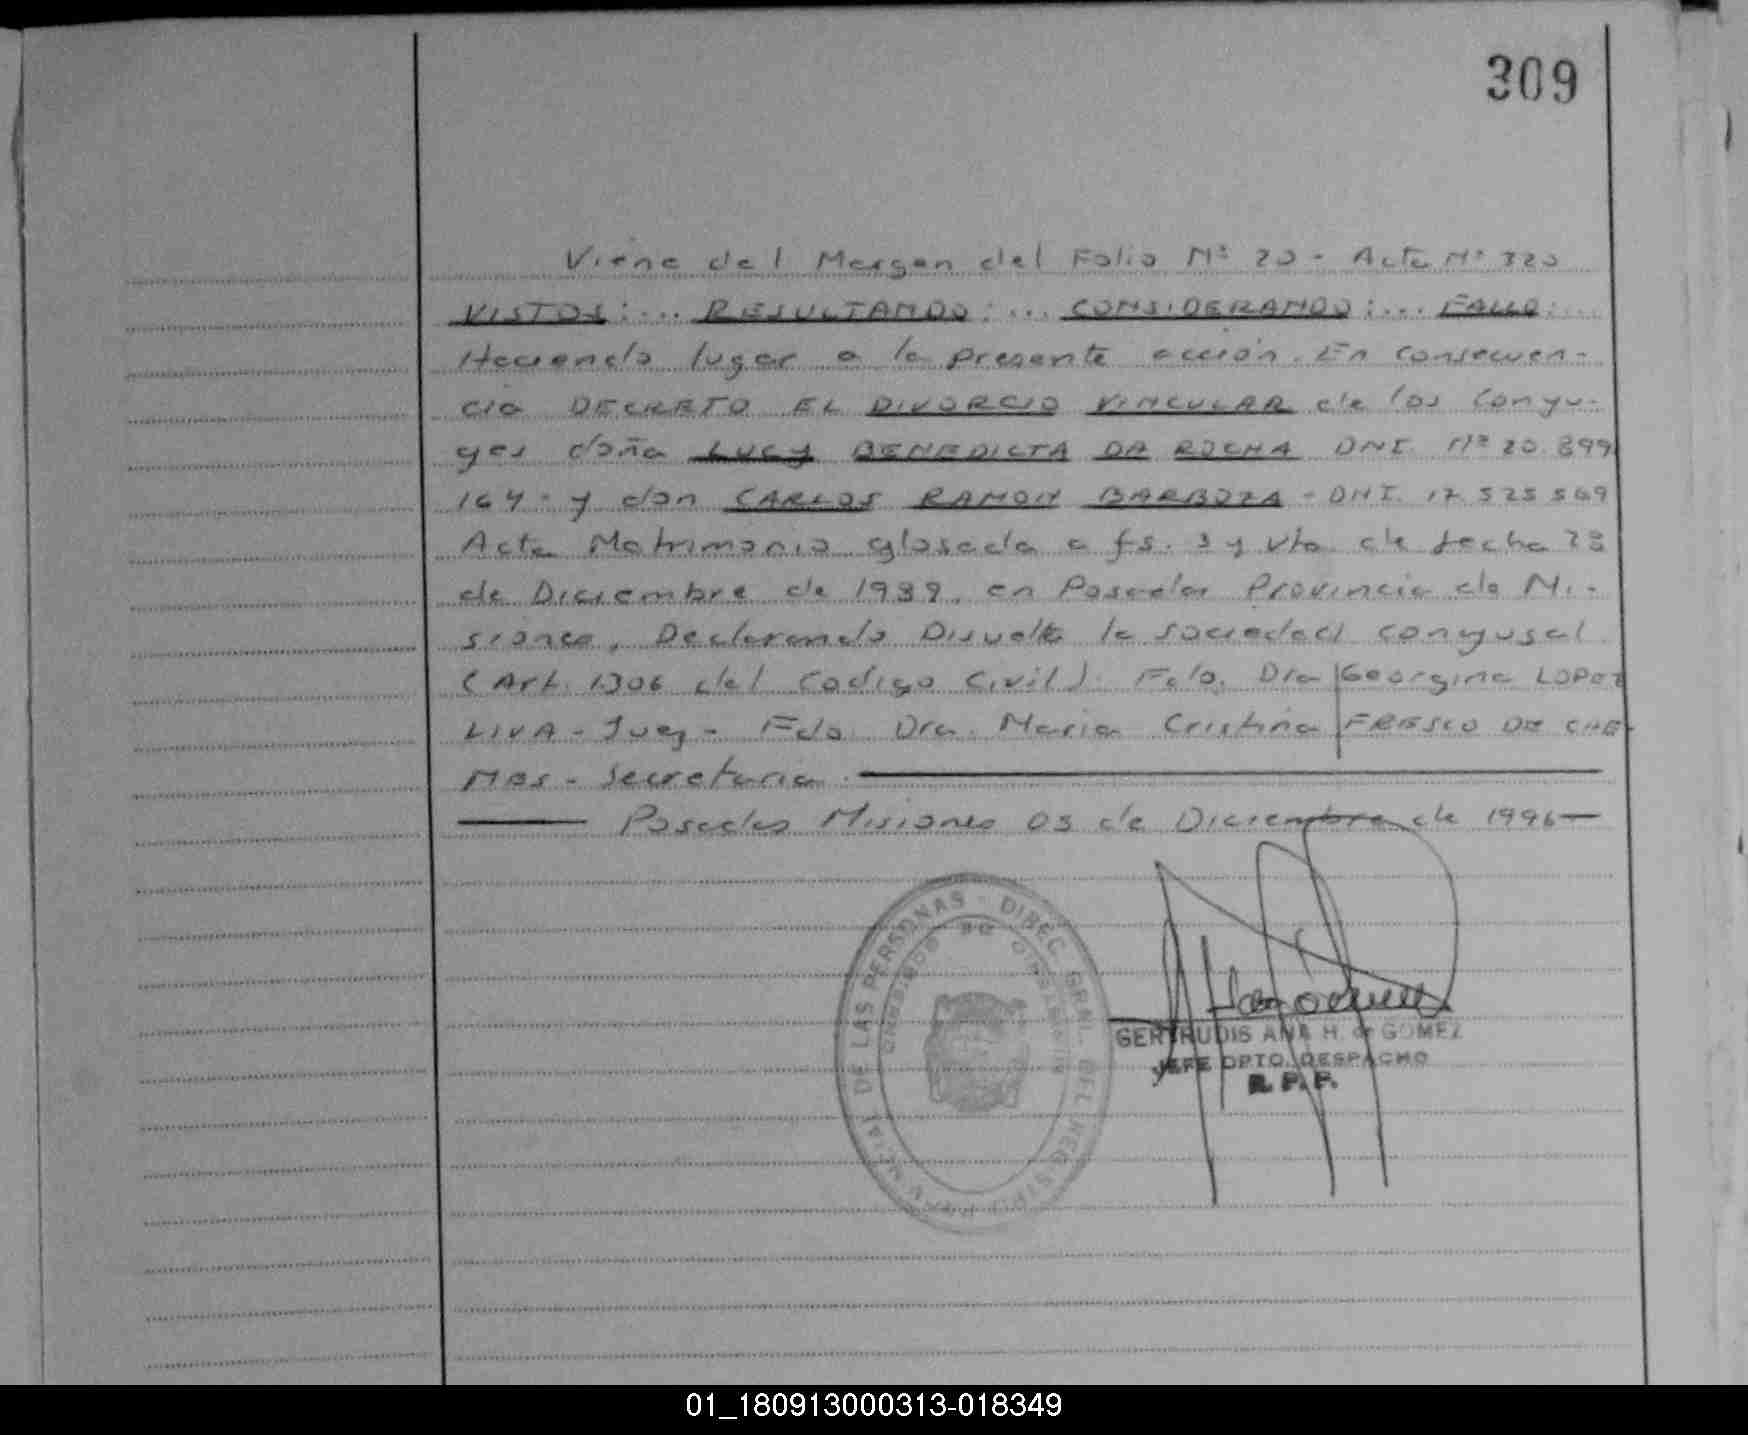 309
Viene del Margen del Folio Nº 20 - Acta Nº 320
VISTOS: ... RESULTANDO: ... CONSIDERANDO: ... FALLO: ...
Haciendo lugar a la presente acción. En consecuen-
cia DECRETO EL DIVORCIO VINCULAR de los conyu-
ges doña LUCY BENEDICTA DA ROCHA DNI. Nº 20.899
164 - y don CARLOS RAMON BARBOZA - DNI. 17.525.569
Acta Matrimonio glosada a fs. 3 y vta. de fecha 28
de Diciembre de 1989, en Posadas Provincia de Mi-
siones, Declarando Disuelta la sociedad conyugal
(Art. 1306 del Codigo Civil). Fdo. Dra Georgina LOPEZ
LIVA - Juez - Fdo. Dra. Maria Cristina FRESCO DE CHE-
MES - Secretaria.
Posadas Misiones 03 de Diciembre de 1996
DIREC. GRAL. DEL REGISTRO PROVINCIAL DE LAS PERSONAS
GERTRUDIS ANA H. de GOMEZ
JEFE DPTO. DESPACHO
R. P. P.
01_180913000313-018349